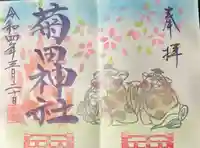 奉拝
菊田神社
令和四年五月二十日